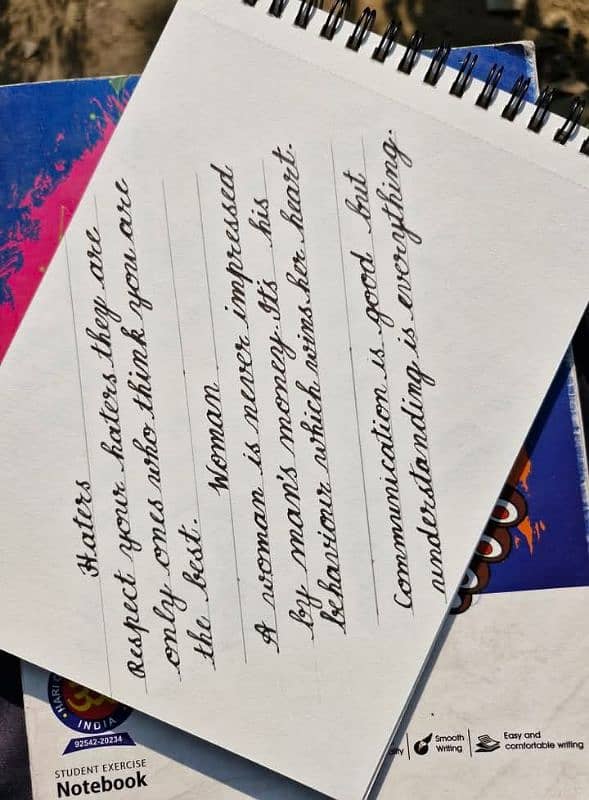 Haters
Respect your haters they are
only ones who think you are
the best.
Woman
A woman is never impressed
by man's money. It's his
behaviour which wins her heart.
Communication is good but
understanding is everything.
HARI
INDIA
92542-20234
STUDENT EXERCISE
Notebook
Smooth
Writing
Easy and
comfortable writing